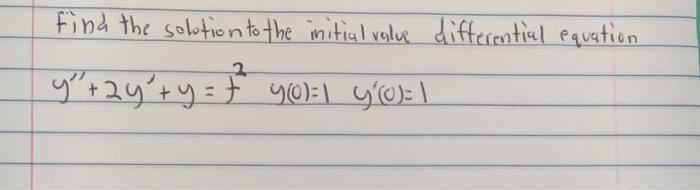 Find the solution to the initial value differential equation
y'' + 2y' + y = t² y(0)=1 y'(0)=1